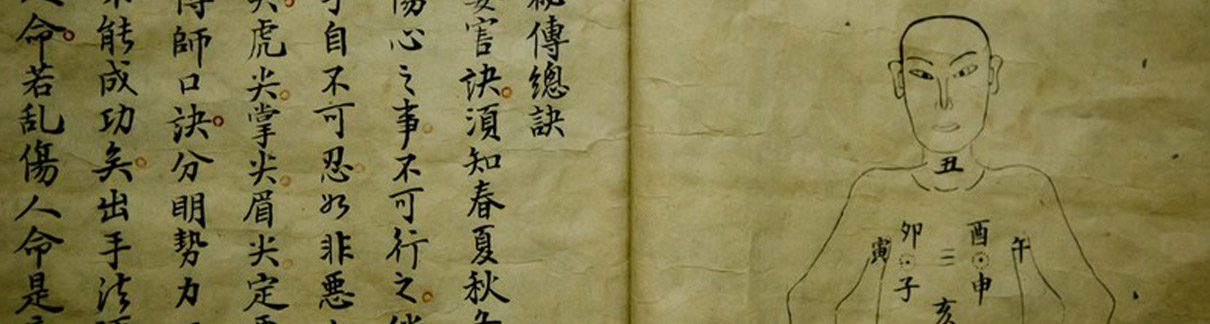 傳總訣
害訣須知春夏秋
傷心之事不可行之
自不可忍如非悪
尖虎尖掌尖眉尖定
師口訣分明勢力
能成功矣出手法
命若乱傷人命是
丑
卯 酉
寅 三 午
子 申
亥